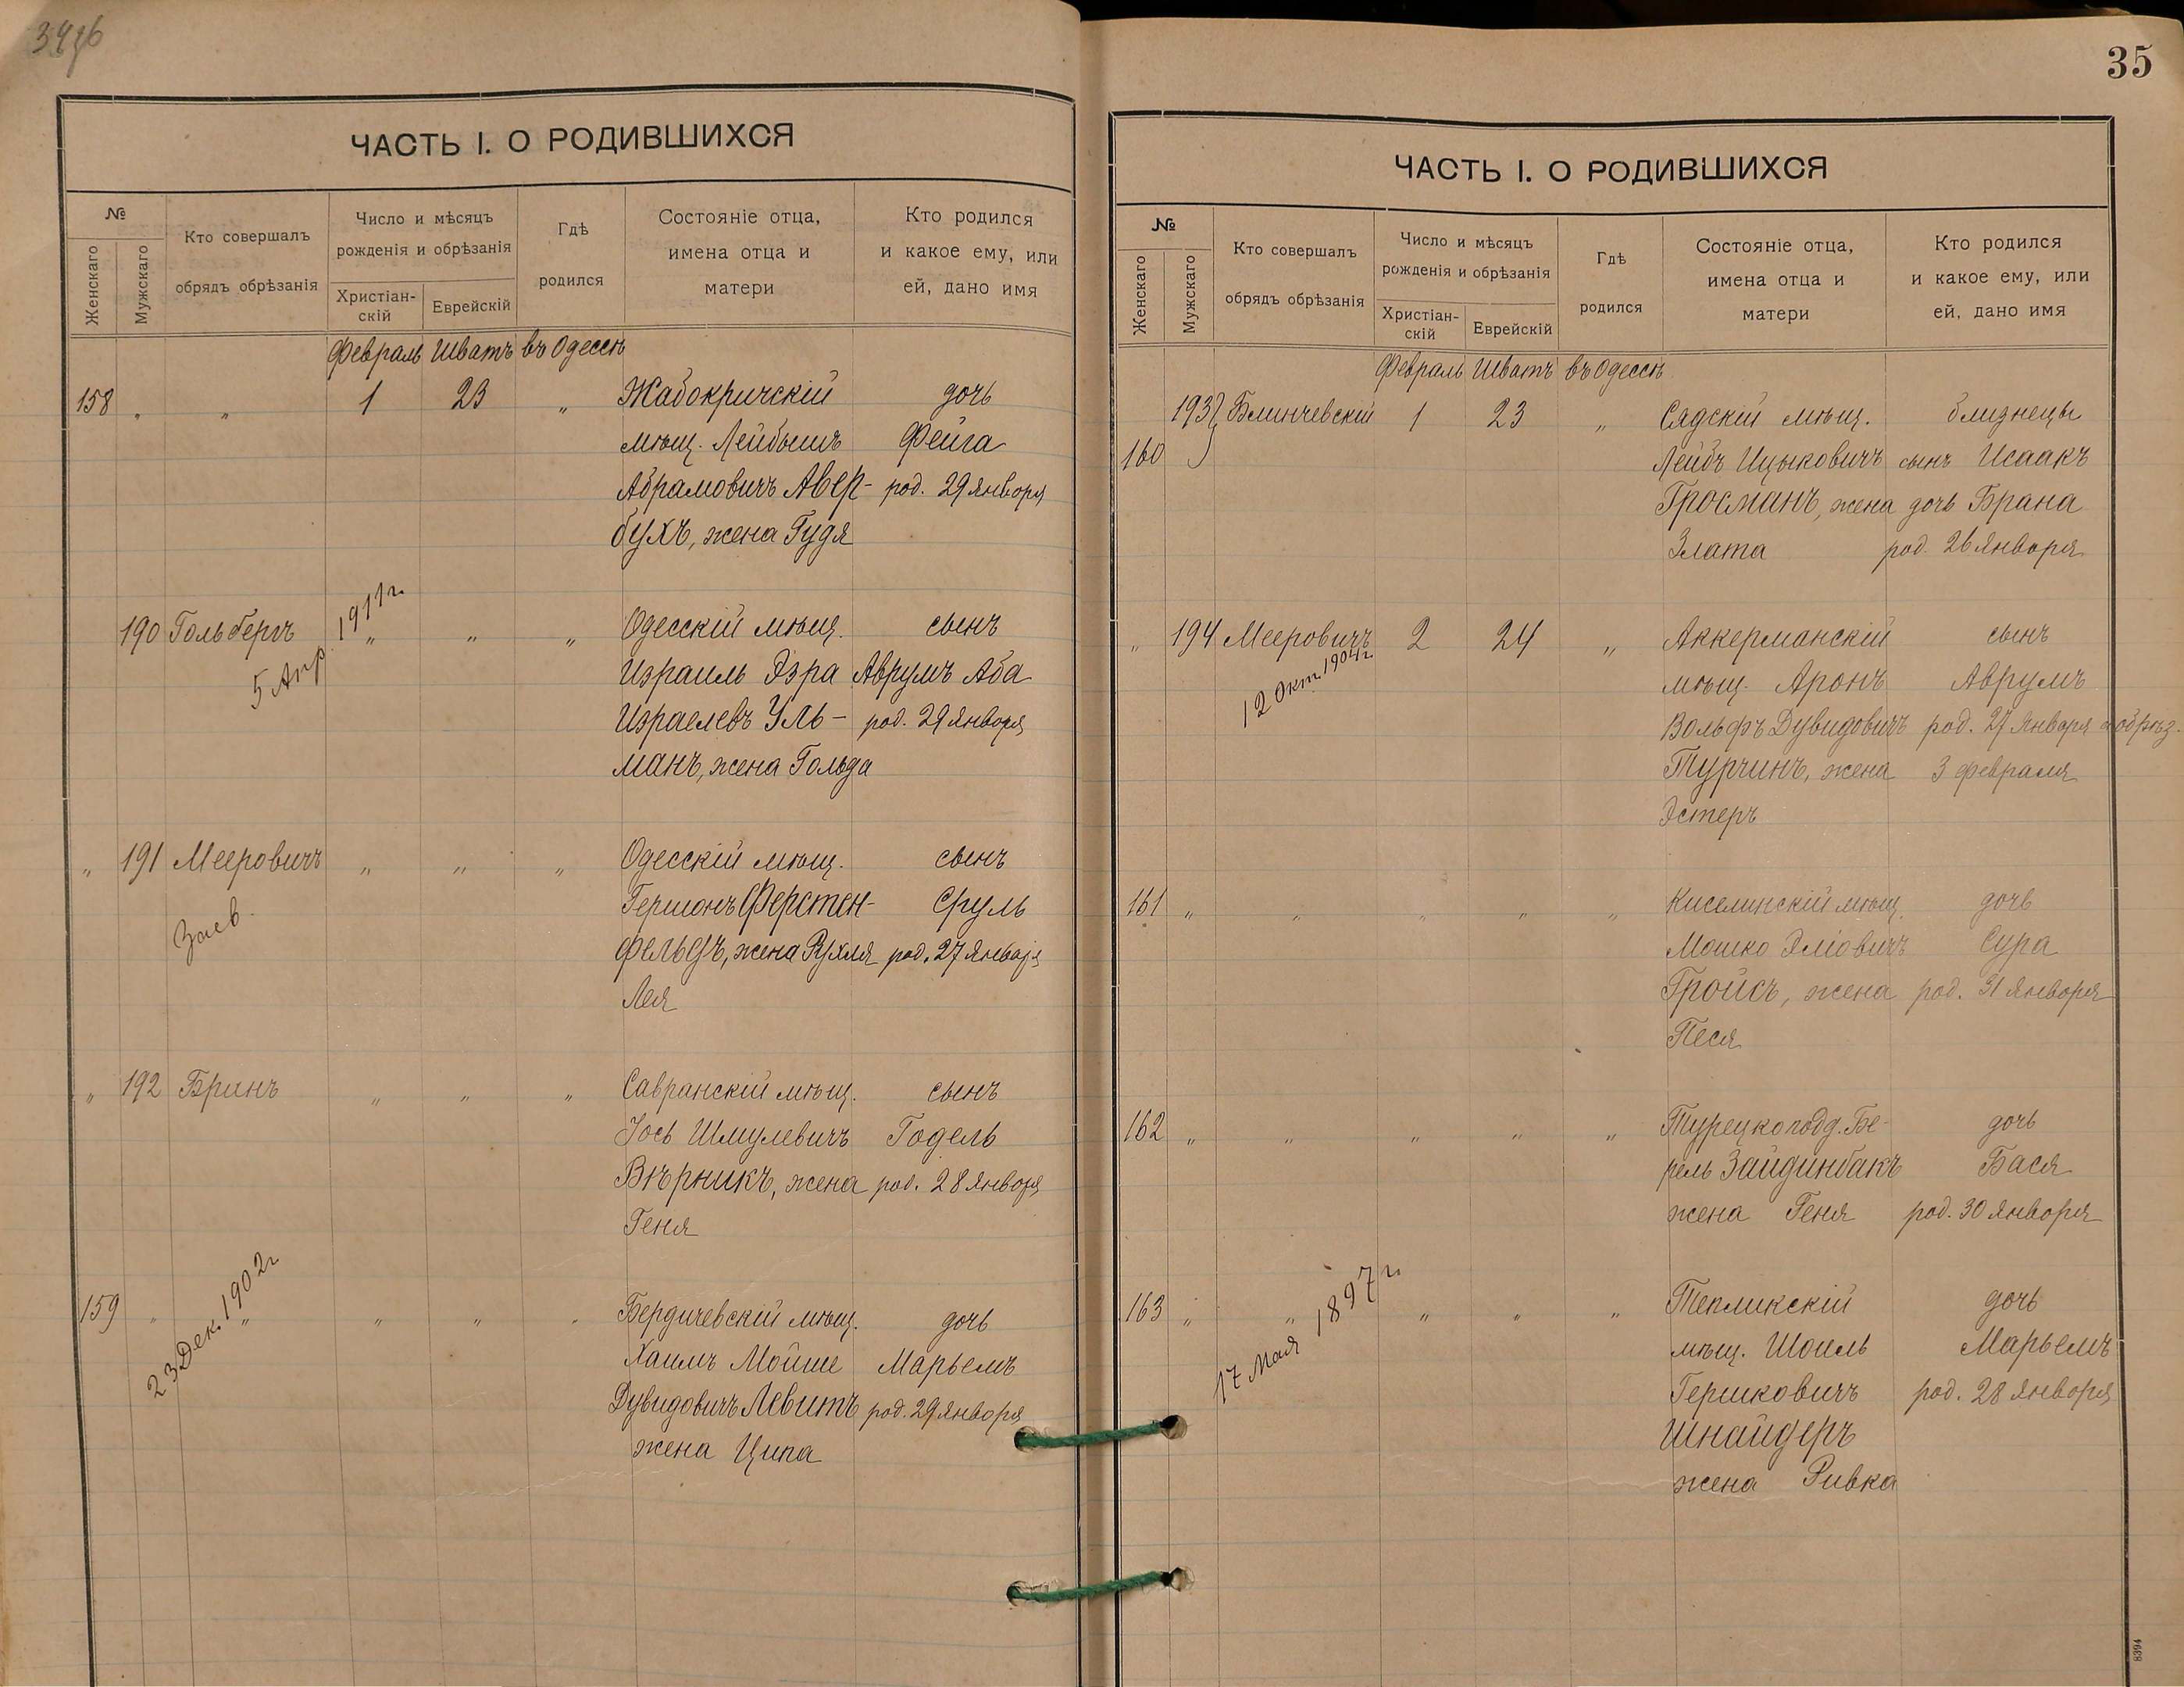 ЧАСТЬ I. О РОДИВШИХСЯ
№
Женскаго
Мужскаго
Кто совершалъ
обрядъ обрѣзанія
Число и мѣсяцъ
рожденія и обрѣзанія
Христіан-
скій
Еврейскій
Гдѣ
родился
Состояніе отца,
имена отца и
матери
Кто родился
и какое ему, или
ей, дано имя
Февраль Шватъ въ Одессѣ
158 „ „ 1 23 „ Жабокричскій дочь
мѣщ. Лейбышъ Фейга
Абрамовичъ Авер- род. 29 января
бухъ, жена Гудя
190 Гольбергъ „ „ „ Одесскій мѣщ. сынъ
5 Апр. 1911 г.
Израиль Эзра Аврумъ Аба
Израелевъ Уль- род. 29 января
манъ, жена Гольда
„ 191 Мееровичъ „ „ „ Одесскій мѣщ. сынъ
Гершонъ Ферстен- Сруль
фельдъ, жена Рухля род. 27 января
Лея
„ 192 Бринъ „ „ „ Савранскій мѣщ. сынъ
Іось Шмулевичъ Годель
Вѣрникъ, жена род. 28 января
Геня
159 „ „ „ „ „ Бердичевскій мѣщ. дочь
23 Дек. 1902 г
Хаимъ Мойше Марьемъ
Дувидовичъ Левитъ род. 29 января
жена Ципа
35
ЧАСТЬ I. О РОДИВШИХСЯ
№
Женскаго
Мужскаго
Кто совершалъ
обрядъ обрѣзанія
Число и мѣсяцъ
рожденія и обрѣзанія
Христіан-
скій
Еврейскій
Гдѣ
родился
Состояніе отца,
имена отца и
матери
Кто родился
и какое ему, или
ей, дано имя
Февраль Шватъ въ Одессѣ
193 Блинчевскій 1 23 „ Садскій мѣщ. близнецы
160 Лейбъ Ицыковичъ сынъ Исаакъ
Гросманъ, жена дочь Брана
Злата род. 26 января
„ 194 Мееровичъ 2 24 „ Аккерманскій сынъ
12 Окт. 1904 г.
мѣщ. Аронъ Аврумъ
Вольфъ Дувидовичъ род. 27 января а обрѣз.
Турчинъ, жена 3 февраля
Эстеръ
161 „ „ „ „ „ Киселинскій мѣщ. дочь
Мошко Эліовичъ Сура
Гройсъ, жена род. 31 января
Песя
162 „ „ „ „ „ Турецкоподд. Бе- дочь
рель Зайдинбакъ Бася
жена Геня род. 30 января
163 „ „ „ „ „ Тепликскій дочь
17 Мая 1897 г.
мѣщ. Шоиль Марьемъ
Гершковичъ род. 28 января
Шнайдеръ
жена Ривка
8394